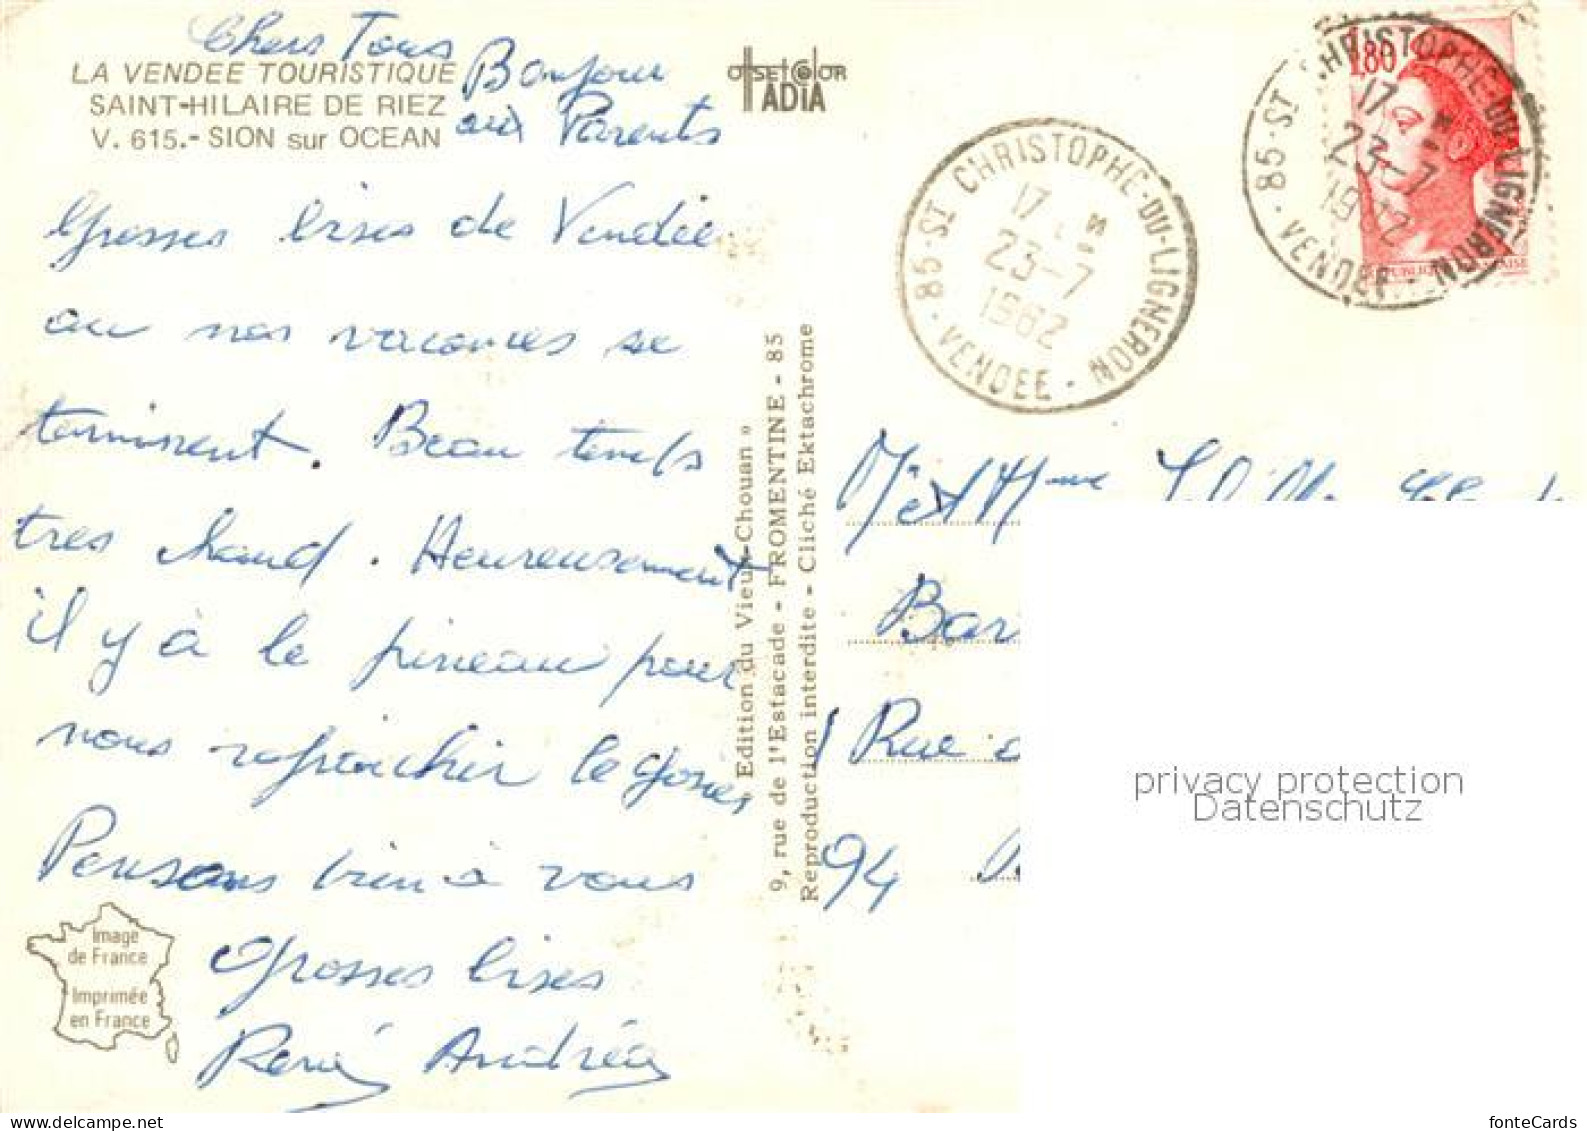 Chers Tous
LA VENDEE TOURISTIQUE
SAINT-HILAIRE DE RIEZ
V. 615.- SION sur OCEAN
Bonjour
aux Parents
Grosses bises de Vendée
ou nos vacances se
terminent. Beau temps
tres chaud. Heureusement
il y à le pineau pour
nous rafraichir le gosier
Pensons bien à vous
Grosses bises
René Andréa
Image
de France
Imprimée
en France
OFFSET COLOR
IADIA
« Edition du Vieux-Chouan »
9, rue de l'Estacade - FROMENTINE - 85
Reproduction interdite - Cliché Ektachrome
85 - ST CHRISTOPHE-DU-LIGNERON - VENDEE
17
23-7
1982
1,80
85 - ST CHRISTOPHE-DU-LIGNERON - VENDEE
17
23-7
1982
REPUBLIQUE
M et Mme
Bar
Rue
94
privacy protection
Datenschutz
fonteCards